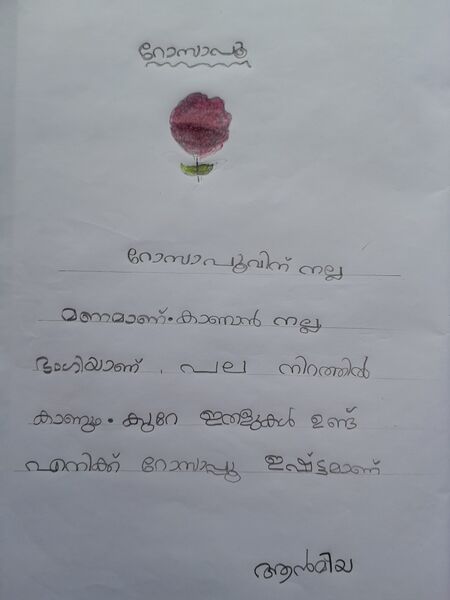 റോസാപൂ
റോസാപൂവിന് നല്ല
മണമാണ്. കാണാൻ നല്ല
ഭംഗിയാണ്. പല നിറത്തിൽ
കാണും. കുറേ ഇതളുകൾ ഉണ്ട്
എനിക്ക് റോസാപ്പൂ ഇഷ്ട്ടമാണ്
ആൻമിയ